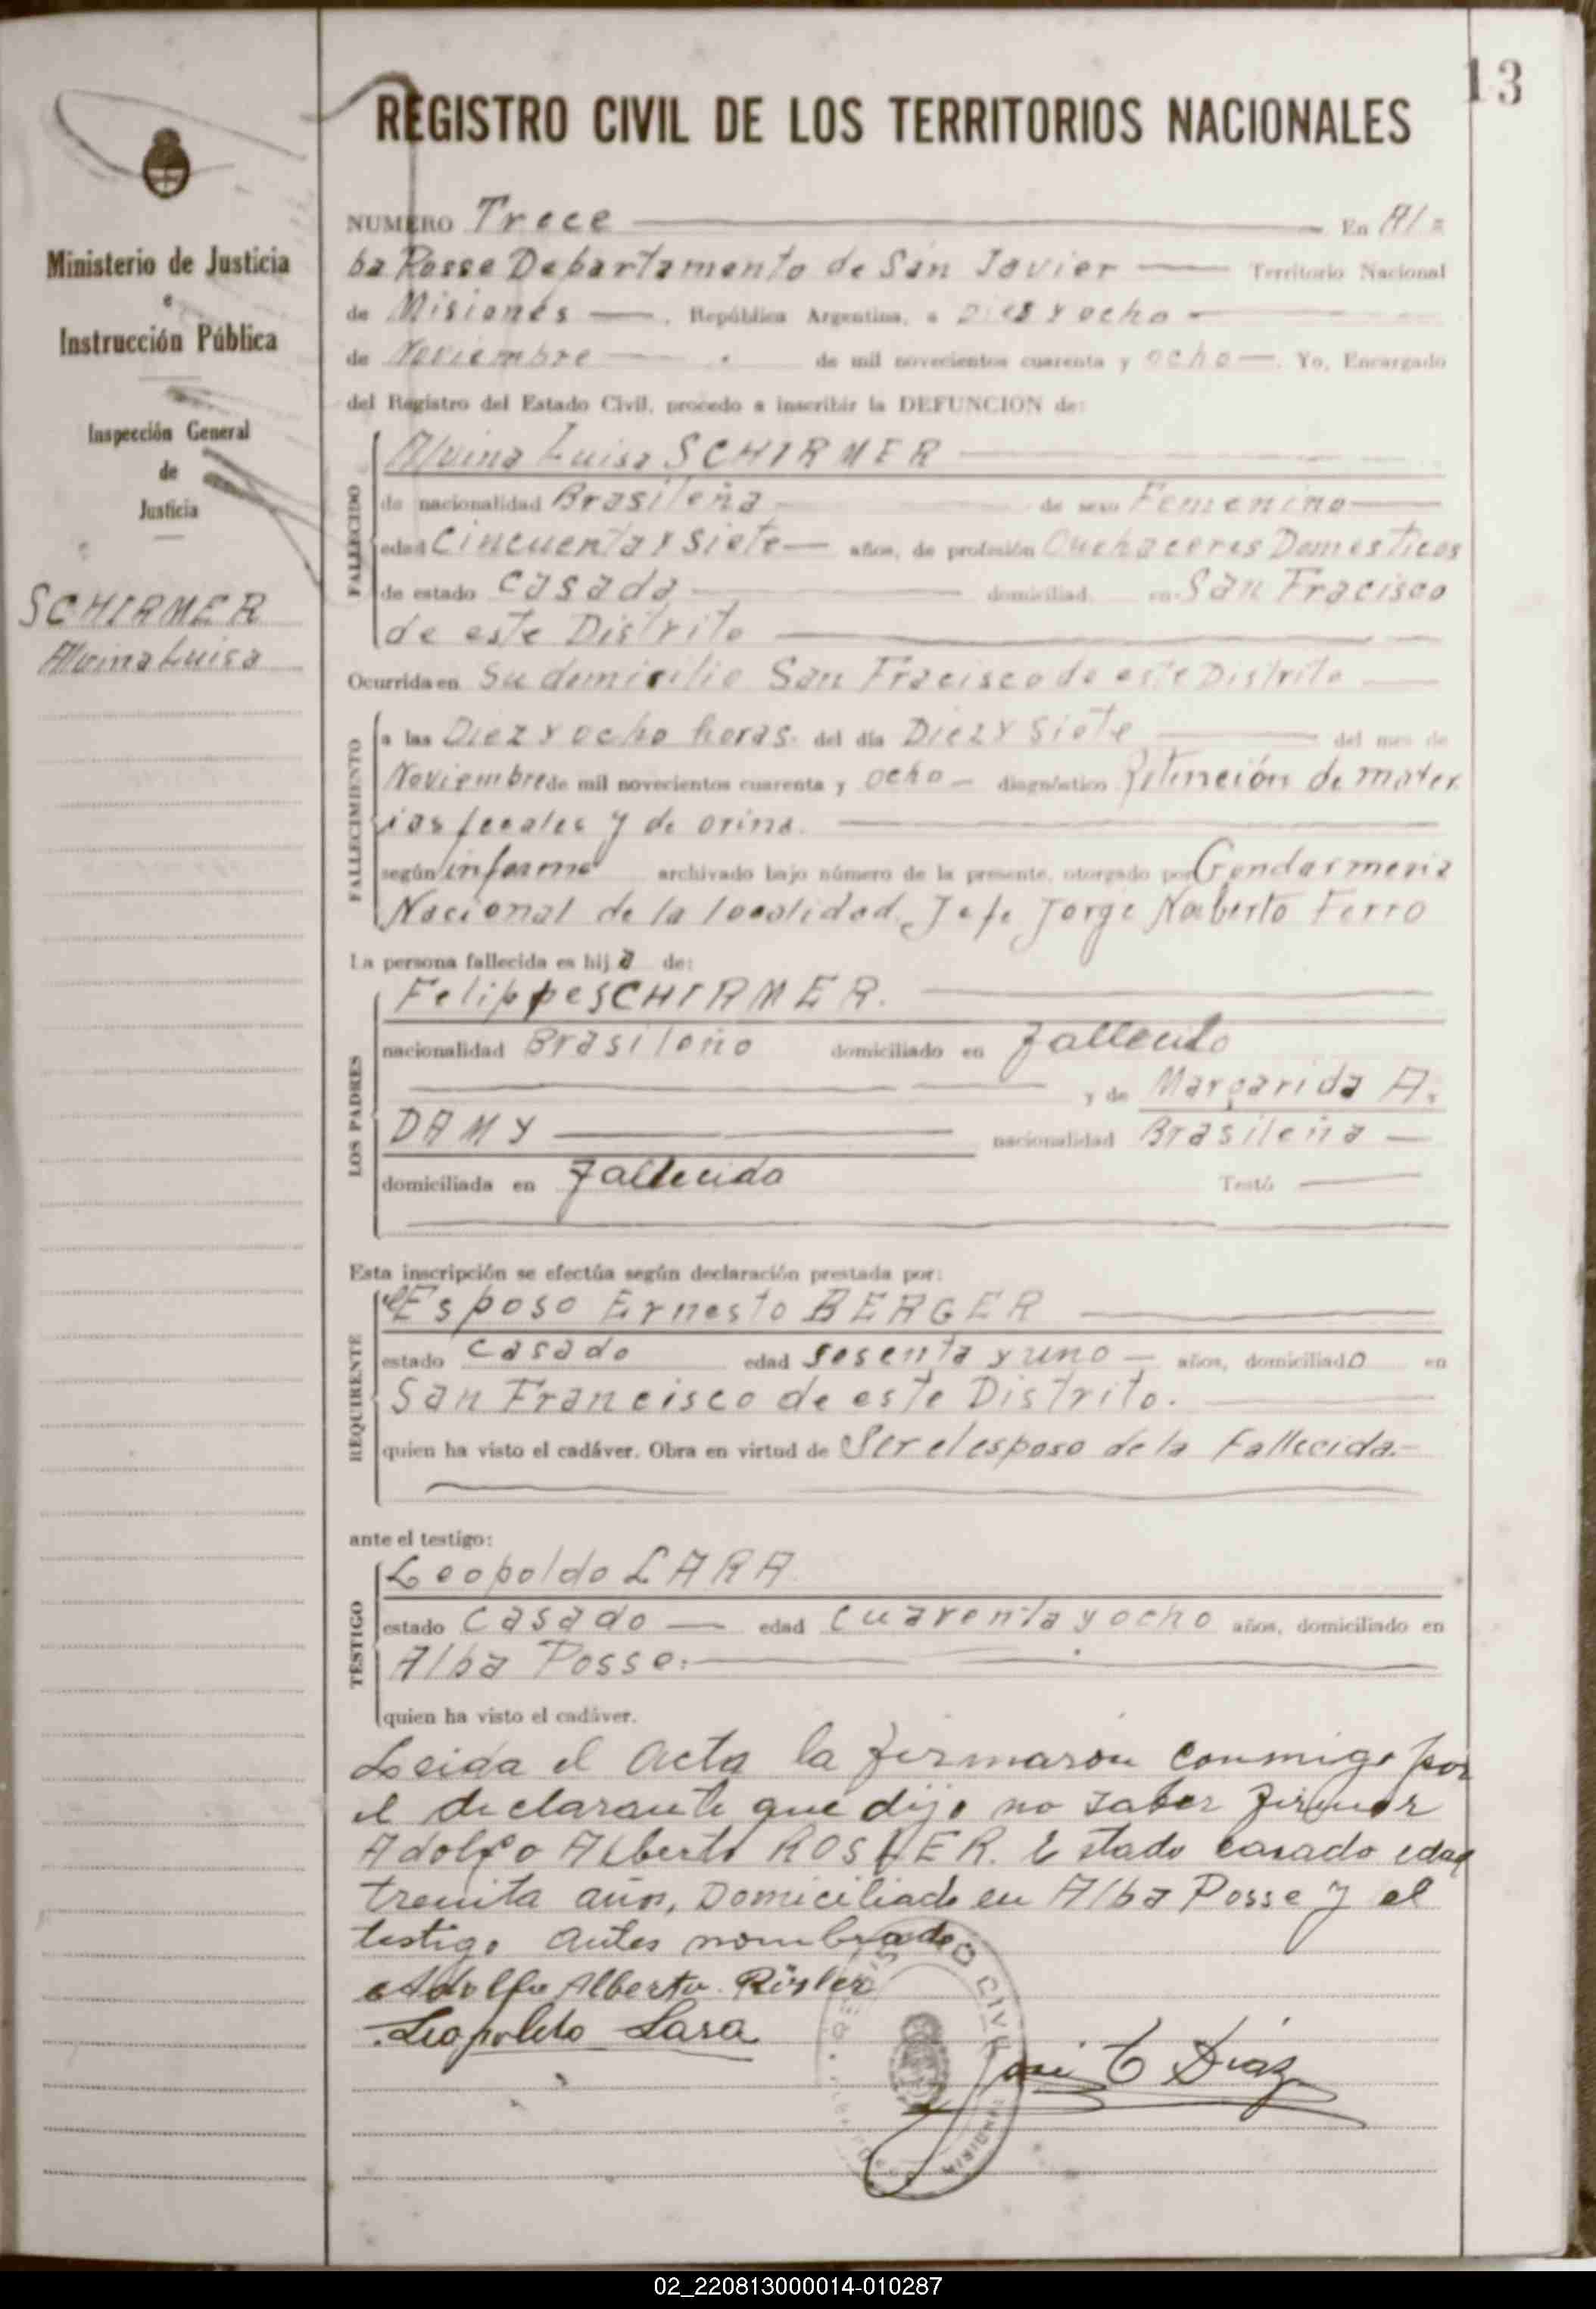 13
REGISTRO CIVIL DE LOS TERRITORIOS NACIONALES
Ministerio de Justicia
e
Instrucción Pública
Inspección General
de
Justicia
SCHIRMER
Alvina Luisa
NUMERO Trece En Al=
ba Posse Departamento de San Javier Territorio Nacional
de Misiones, República Argentina, a Diez y ocho
de Noviembre de mil novecientos cuarenta y ocho. Yo, Encargado
del Registro del Estado Civil, procedo a inscribir la DEFUNCION de:
FALLECIDO
Alvina Luisa SCHIRMER
de nacionalidad Brasileña de sexo Femenino
edad Cincuenta y Siete años, de profesión Quehaceres Domesticos
de estado Casada domiciliad en San Fracisco
de este Distrito
Ocurrida en Su domicilio San Fracisco de este Distrito
FALLECIMIENTO
a las Diez y ocho horas del día Diez y Siete del mes de
Noviembre de mil novecientos cuarenta y ocho diagnóstico Retención de mater
ias fecales y de orina.
según informe archivado bajo número de la presente, otorgado por Gendarmeria
Nacional de la localidad, Jefe Jorge Norberto Ferro
La persona fallecida es hija de:
LOS PADRES
Felippe SCHIRMER.
nacionalidad Brasileño domiciliado en fallecido
y de Margarida A.
DAMY nacionalidad Brasileña
domiciliada en fallecida Testó
Esta inscripción se efectúa según declaración prestada por:
REQUIRENTE
el Esposo Ernesto BERGER
estado Casado edad Sesenta y uno años, domiciliado en
San Francisco de este Distrito.
quien ha visto el cadáver. Obra en virtud de Ser el esposo de la Fallecida.-
ante el testigo:
TESTIGO
Leopoldo LARA
estado Casado edad Cuarenta y ocho años, domiciliado en
Alba Posse.
quien ha visto el cadáver.
Leida el Acta la firmaron conmigo por
el declarante que dijo no saber firmar
Adolfo Alberto ROSLER. Estado casado edad
treinta años, Domiciliado en Alba Posse y el
testigo antes nombrado
Adolfo Alberto Rösler
Leopoldo Lara
José C Diaz
02_220813000014-010287